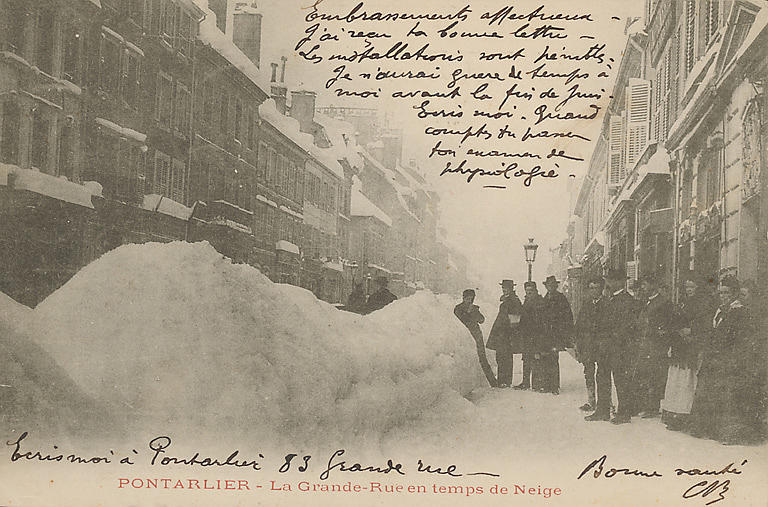 Embrassements affectueux -
J'ai reçu ta bonne lettre -
Les installations sont pénibles.
Je n'aurai guère de temps à
moi avant la fin de Juin.
Ecris moi. Quand
comptes tu passer
ton examen de
physiologie.
Ecris moi à Pontarlier 83 Grande rue -
Bonne santé
CB
PONTARLIER - La Grande-Rue en temps de Neige